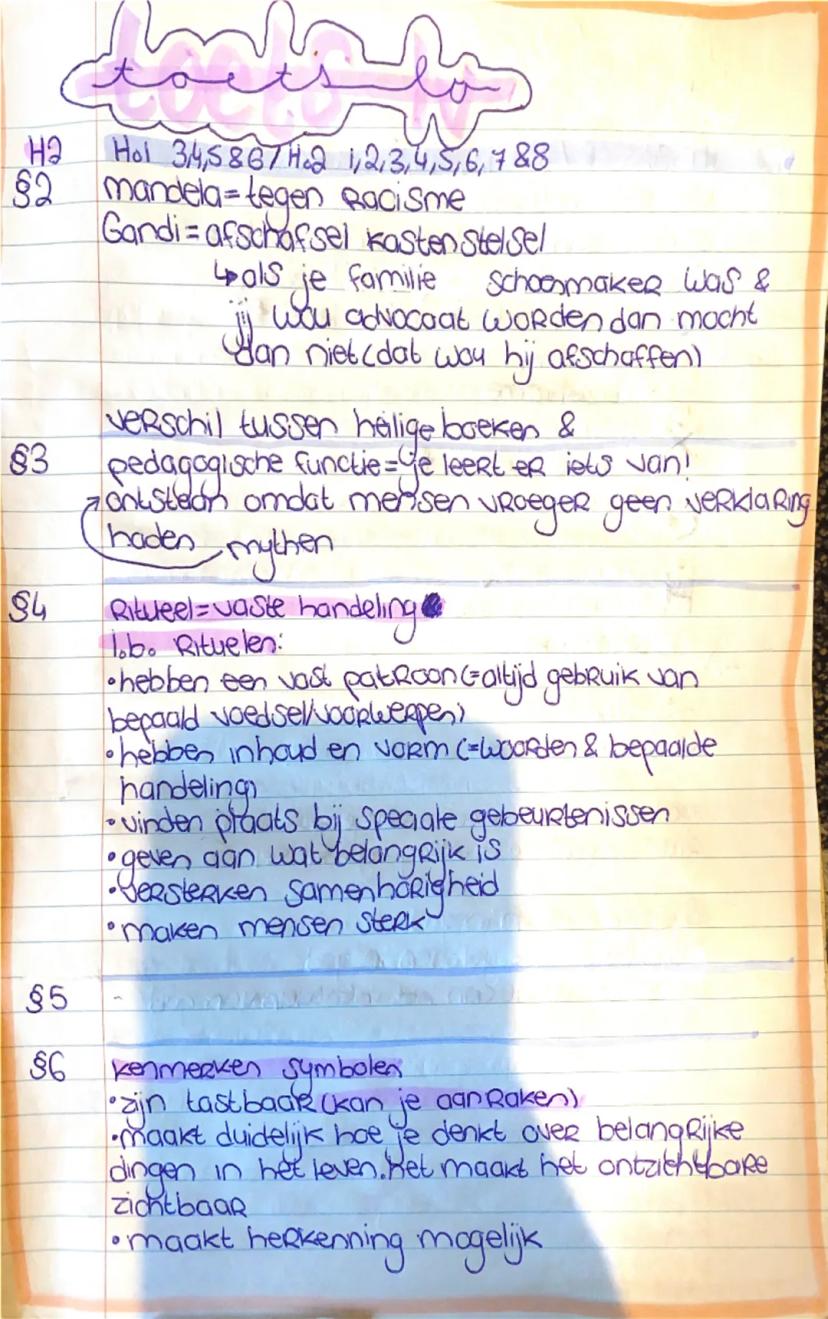 toets lv
H2 Ho1 3,4,5 & 6 / Ho2 1,2,3,4,5,6,7 & 8
§2 mandela = tegen Racisme
Gandi = afschafsel kastenstelsel
↳ als je familie schoenmaker was &
jij wou advocaat worden dan mocht
dan niet (dat wou hij afschaffen)
verschil tussen heilige boeken &
§3 pedagogische functie = je leert er iets van!
ontstaan omdat mensen vroeger geen verklaring
haden mythen
§4 Ritueel = vaste handeling
1.b. Rituelen:
• hebben een vast patroon (= altijd gebruik van
bepaald voedsel/voorwerpen)
• hebben inhoud en vorm (= woorden & bepaalde
handeling)
• vinden plaats bij speciale gebeurtenissen
• geven aan wat belangrijk is
• versterken samenhorigheid
• maken mensen sterk
§5 -
§6 kenmerken symbolen
• zijn tastbaar (kan je aanraken)
• maakt duidelijk hoe je denkt over belangrijke
dingen in het leven. Het maakt het ontzichtbare
zichtbaar
• maakt herkenning mogelijk